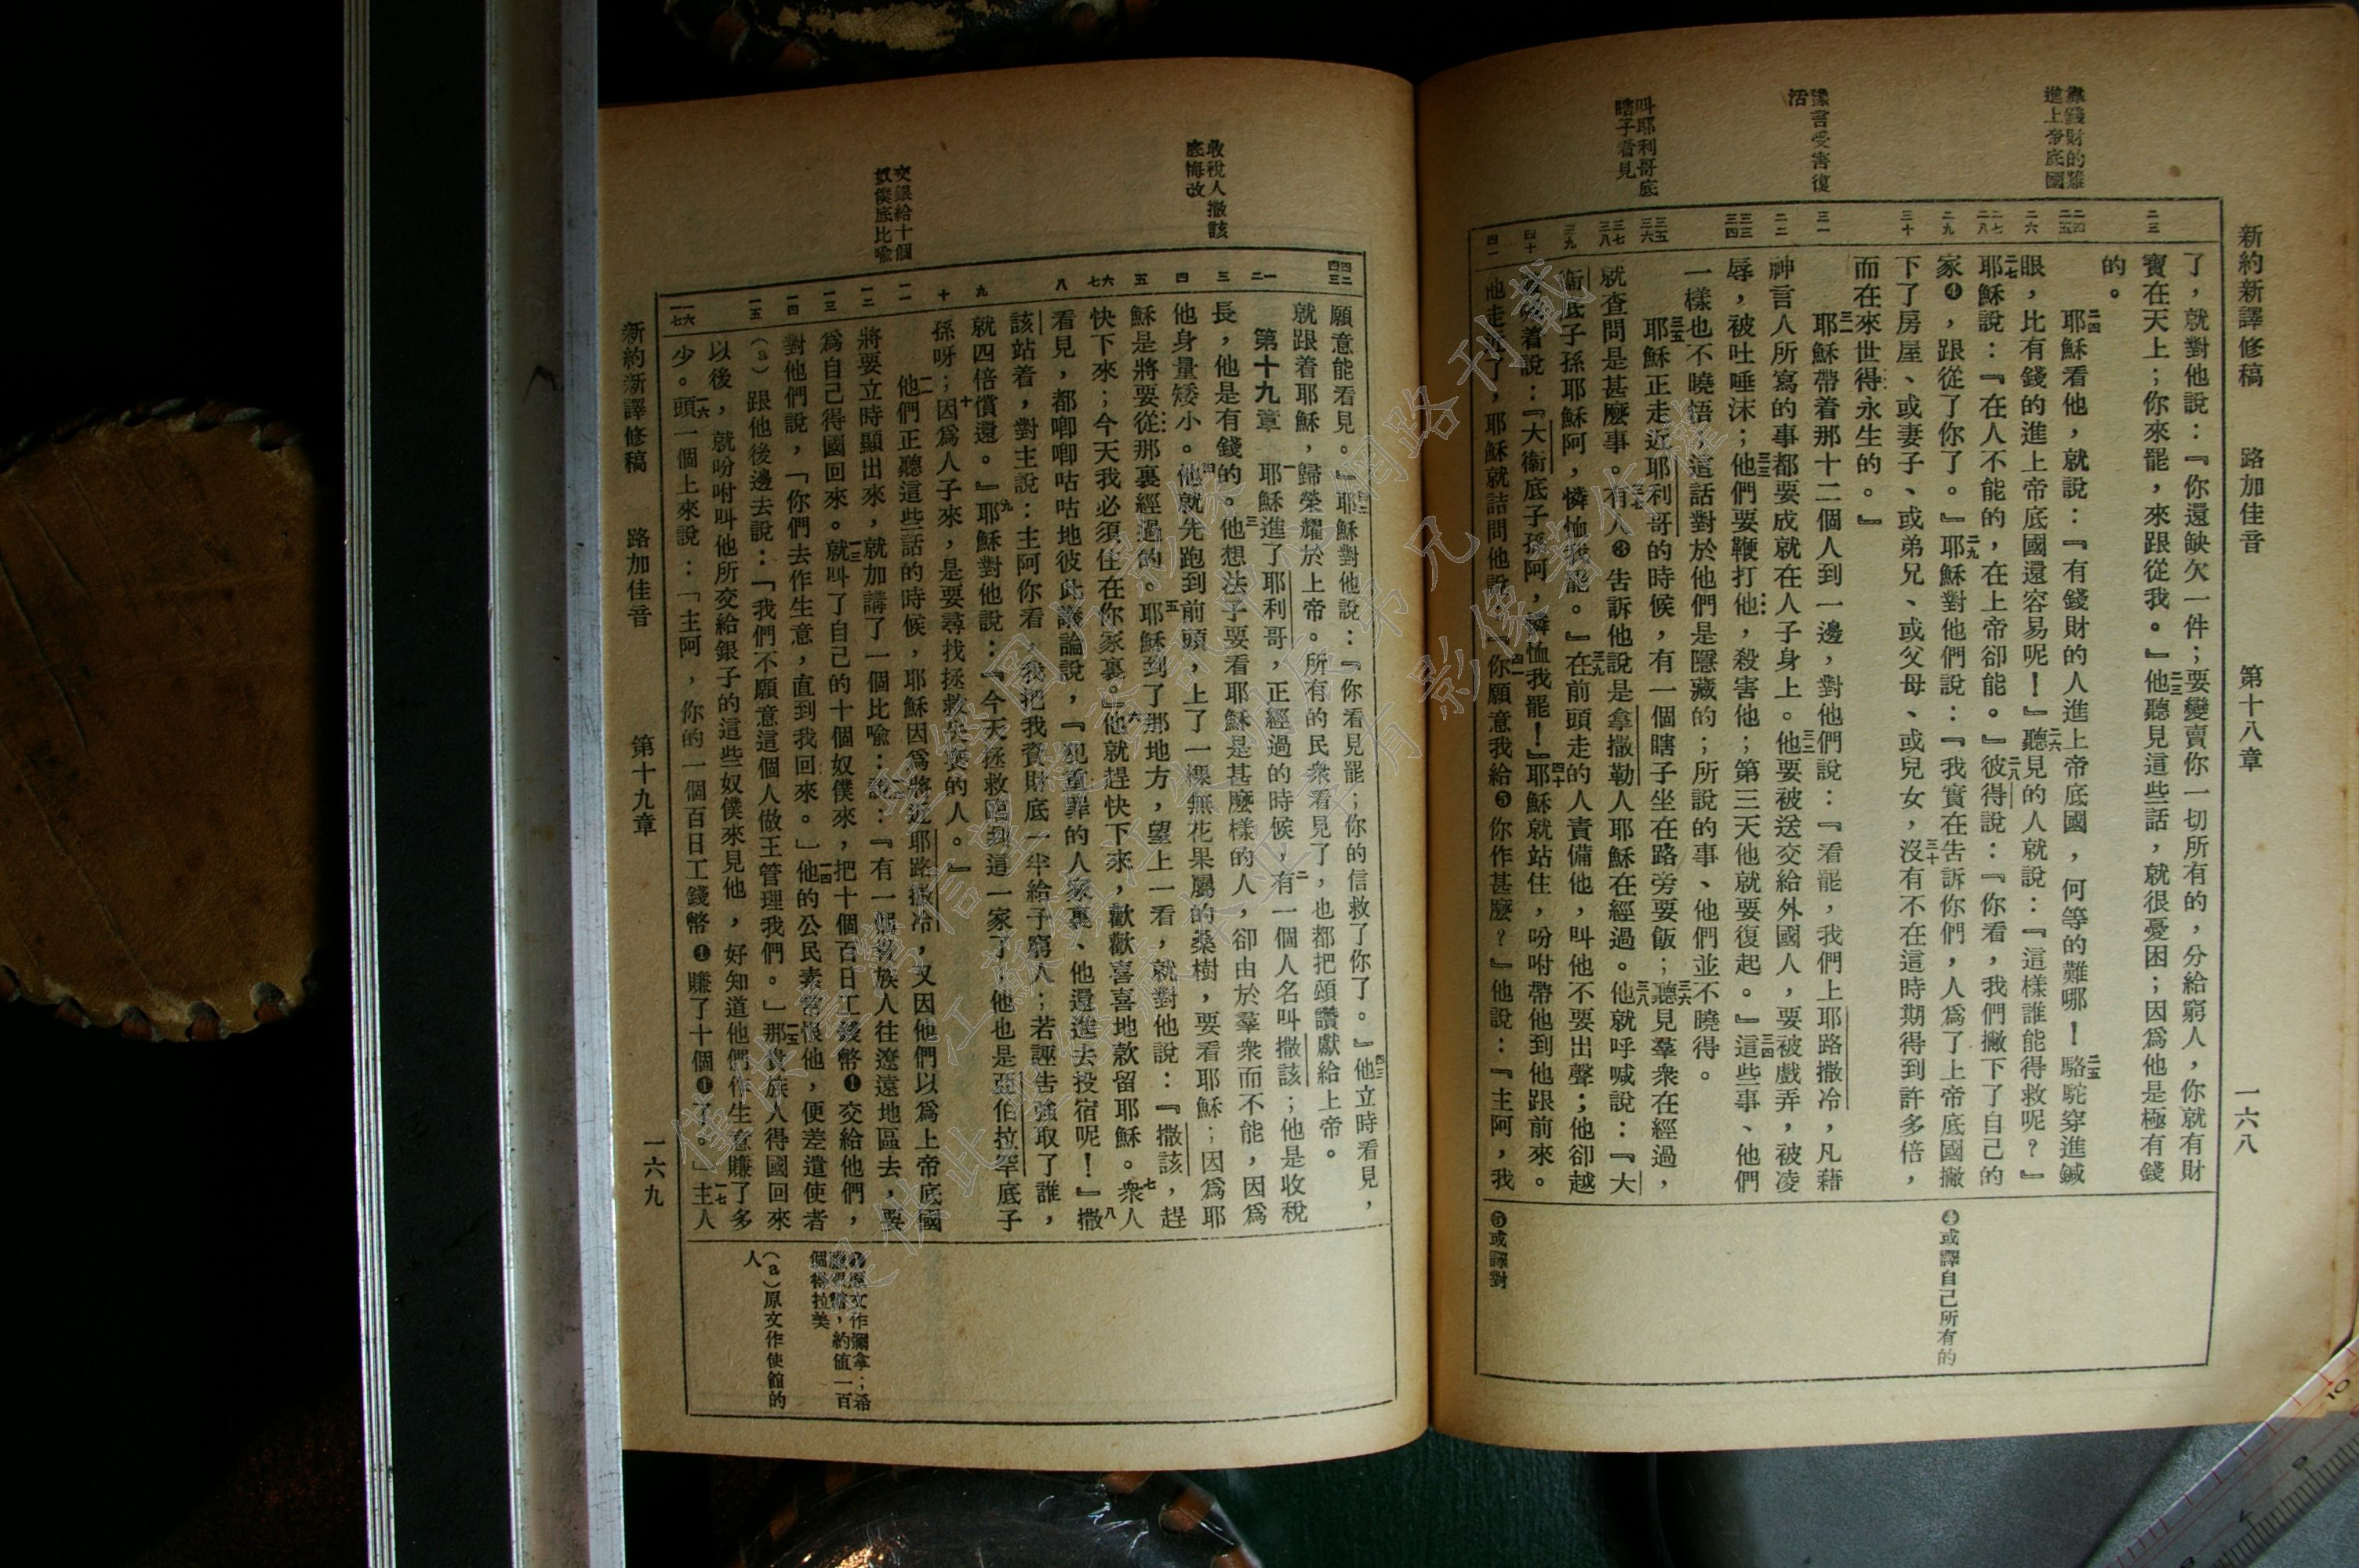 新約新譯修稿 路加佳音 第十八章 一六八
靠錢財的難
進上帝底國
豫言受害復
活
叫耶利哥底
瞎子看見
二三
二四
二五
二六
二七
二八
二九
三十
三一
三二
三三
三四
三五
三六
三七
三八
三九
四十
四一
了，就對他說：『你還缺欠一件；要變賣你一切所有的，分給窮人，你就有財
寶在天上；你來罷，來跟從我。』二三他聽見這些話，就很憂困；因爲他是極有錢
的。
二四耶穌看他，就說：『有錢財的人進上帝底國，何等的難哪！二五駱駝穿進鍼
眼，比有錢的進上帝底國還容易呢！』二六聽見的人就說：『這樣誰能得救呢？』
二七耶穌說：『在人不能的，在上帝卻能。』二八彼得說：『你看，我們撇下了自己的
家❹，跟從了你了。』二九耶穌對他們說：『我實在告訴你們，人爲了上帝底國撇
下了房屋、或妻子、或弟兄、或父母、或兒女，三十沒有不在這時期得到許多倍，
而在來世得永生的。』
三一耶穌帶着那十二個人到一邊，對他們說：『看罷，我們上耶路撒冷，凡藉
神言人所寫的事都要成就在人子身上。三二他要被送交給外國人，要被戲弄，被凌
辱，被吐唾沫；三三他們要鞭打他，殺害他；第三天他就要復起。』三四這些事、他們
一樣也不曉悟；這話對於他們是隱藏的；所說的事、他們並不曉得。
三五耶穌正走近耶利哥的時候，有一個瞎子坐在路旁要飯；三六聽見羣衆在經過，
就查問是甚麼事。三七有人❸告訴他說是拿撒勒人耶穌在經過。三八他就呼喊說：『大
衞底子孫耶穌阿，憐恤我罷。』三九在前頭走的人責備他，叫他不要出聲；他卻越
喊着說：『大衞底子孫阿，憐恤我罷！』四十耶穌就站住，吩咐帶他到他跟前來。
他走近了，耶穌就詰問他說：四一『你願意我給❺你作甚麼？』他說：『主阿，我
❹或譯自己所有的
❺或譯對
收稅人撒該
底悔改
交銀給十個
奴僕底比喻
四二
四三
一
二
三
四
五
六
七
八
九
十
一一
一二
一三
一四
一五
一六
一七
願意能看見。』四二耶穌對他說：『你看見罷；你的信救了你了。』四三他立時看見，
就跟着耶穌，歸榮耀於上帝。所有的民衆看見了，也都把頌讚獻給上帝。
第十九章 一耶穌進了耶利哥，正經過的時候，二有一個人名叫撒該；他是收稅
長，他是有錢的。三他想法子要看耶穌是甚麼樣的人，卻由於羣衆而不能，因爲
他身量矮小。四他就先跑到前頭，上了一棵無花果屬的桑樹，要看耶穌；因爲耶
穌是將要從那裏經過的。五耶穌到了那地方，望上一看，就對他說：『撒該，趕
快下來；今天我必須住在你家裏。』六他就趕快下來，歡歡喜喜地款留耶穌。七衆人
看見，都唧唧咕咕地彼此議論說，『犯重罪的人家裏、他還進去投宿呢！』八撒
該站着，對主說：主阿你看，我把我資財底一半給予窮人；若誣告強取了誰，
就四倍償還。』九耶穌對他說：『今天拯救臨到這一家了！他也是亞伯拉罕底子
孫呀；十因爲人子來，是要尋找拯救失喪的人。』
一一他們正聽這些話的時候，耶穌因爲將近耶路撒冷，又因他們以爲上帝底國
將要立時顯出來，就加講了一個比喻：一二說：『有一個貴族人往遼遠地區去，要
爲自己得國回來。一三就叫了自己的十個奴僕來，把十個百日工錢幣❶交給他們，
對他們說，「你們去作生意，直到我回來。」一四他的公民素常恨他，便差遣使者
（a）跟他後邊去說：「我們不願意這個人做王管理我們。」一五那貴族人得國回來
以後，就吩咐叫他所交給銀子的這些奴僕來見他，好知道他們作生意賺了多
少。一六頭一個上來說：「主阿，你的一個百日工錢幣❶賺了十個❶了。」一七主人
❶原文作彌拿；希
，約值一百
個得拉美
（a）原文作使館的
人
新約新譯修稿 路加佳音 第十九章 一六九